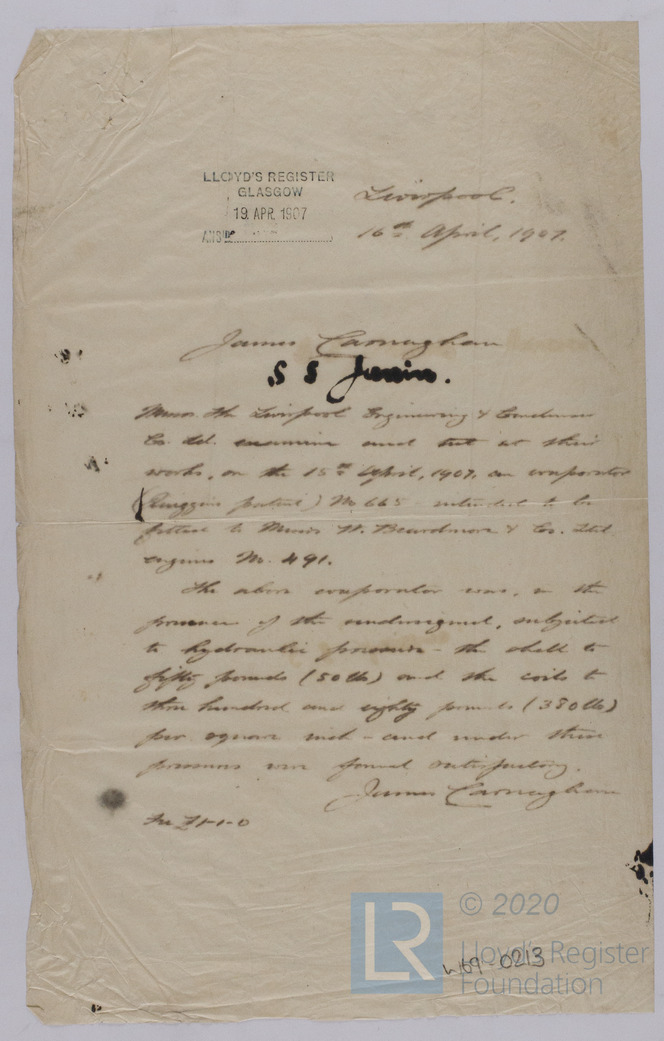 LLOYD'S REGISTER
GLASGOW
19. APR. 1907
ANSD
Liverpool.
16th April, 1907.
James Carnaghan
S S Junin.
Messrs. The Liverpool Engineering & Condenser
Co. Ld. examine and test at their
works, on the 15th April, 1907, an evaporator
(Quiggins patent) No 665 intended to be
fitted to Messrs W. Beardmore & Co. Ltd
engines No. 491.
The above evaporator was, in the
presence of the undersigned, subjected
to hydraulic pressure - the shell to
fifty pounds (50 lb) and the coils to
three hundred and eighty pounds (380 lb)
per square inch - and under these
pressures were found satisfactory.
James Carnaghan
Fee £1-1-0
LR
© 2020
Lloyd's Register
Foundation
W169-0213